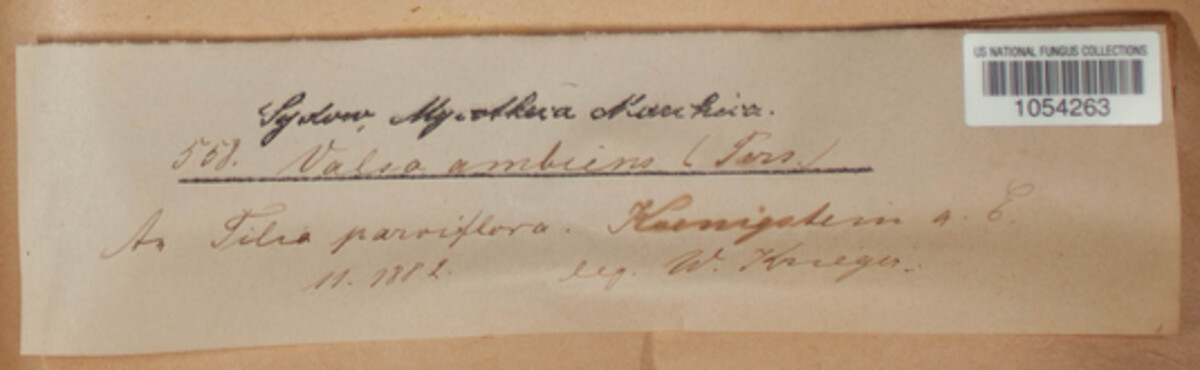 US NATIONAL FUNGUS COLLECTIONS
1054263
Sydow, Mycotheca Marchica.
558. Valsa ambiens (Pers.)
An Tilia parviflora. Koenigstein a. E.
11. 1882. leg. W. Krieger.